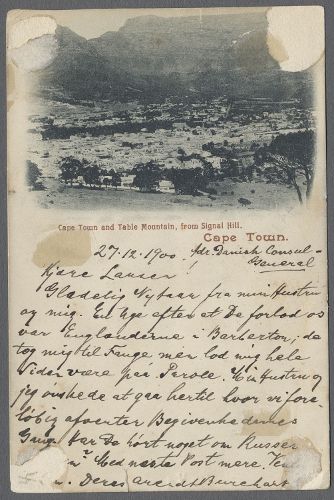 Cape Town and Table Mountain, from Signal Hill.
Cape Town.
27.12.1900. Adr. Danish Consul-
General
Kjære Lauser!
Glædelig Nytaar fra min Hustru
og mig. En Uge efter at De forlod os
var Englænderne i Barberton; de
tog mig til Fange men lod mig hele
Tiden være paa Parole. Min Hustru og
jeg ønskede at gaa hertil hvor vi fore-
löbig afventer Begivenhedernes
Gang. Har De hört noget om Russer
Med næste Post mere. Ven
Deres Arendt Burchart